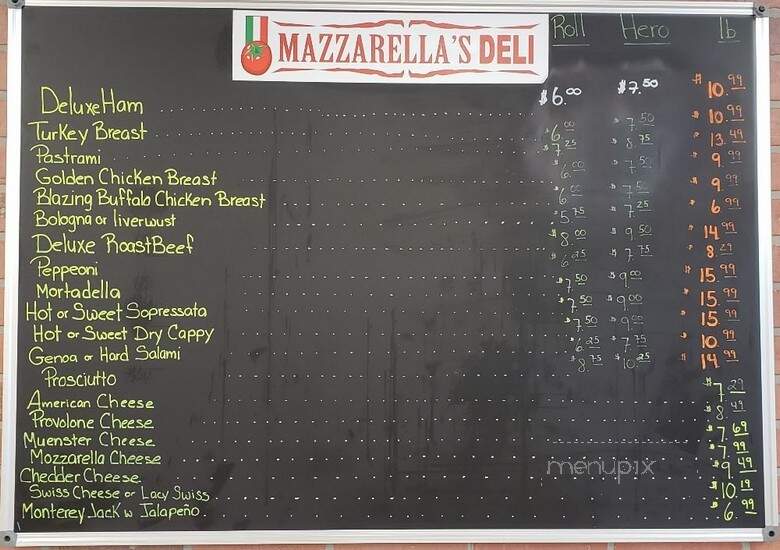 MAZZARELLA'S DELI Roll Hero lb
Deluxe Ham $6.00 $7.50 $10.99
Turkey Breast $6.00 $7.50 $10.99
Pastrami $7.25 $8.75 $13.49
Golden Chicken Breast $6.00 $7.50 $9.99
Blazing Buffalo Chicken Breast $6.00 $7.50 $9.99
Bologna or liverwust $5.75 $7.25 $6.99
Deluxe RoastBeef $8.00 $9.50 $14.99
Peppeoni $6.25 $7.75 $8.29
Mortadella $7.50 $9.00 $15.99
Hot or Sweet Sopressata $7.50 $9.00 $15.99
Hot or Sweet Dry Cappy $7.50 $9.00 $15.99
Genoa or Hard Salami $6.25 $7.75 $10.99
Prosciutto $8.75 $10.25 $14.99
American Cheese $7.29
Provolone Cheese $8.49
Muenster Cheese $7.69
Mozzarella Cheese $7.99
Chedder Cheese $9.49
Swiss Cheese or Lacy Swiss $10.19
Monterey Jack w Jalapeño $6.99
menupix